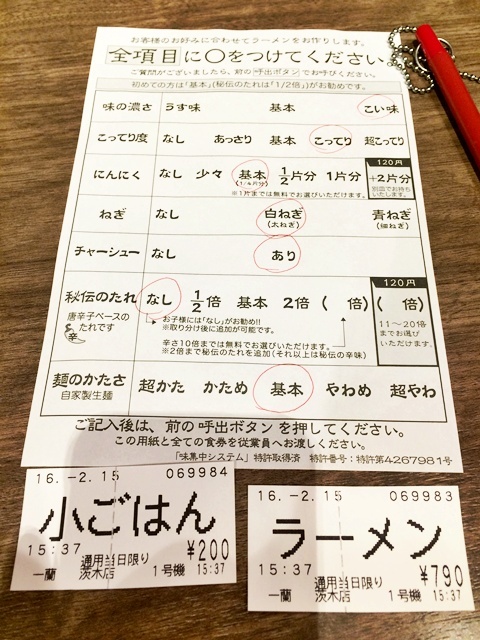 お客様のお好みに合わせてラーメンをお作りします。
全項目に〇をつけてください。
ご質問がございましたら、前の呼出ボタンでお呼びください。
初めての方は「基本」(秘伝のたれは「1/2倍」)がお勧めです。
味の濃さ うす味 基本 こい味
こってり度 なし あっさり 基本 こってり 超こってり
にんにく なし 少々 基本 1/2片分 1片分
(1/4片分)
※1片までは無料でお選びいただけます。
120円
+2片分
別皿でお持ちいたします。
ねぎ なし 白ねぎ 青ねぎ
(太ねぎ) (細ねぎ)
チャーシュー なし あり
秘伝のたれ なし 1/2倍 基本 2倍 ( 倍)
唐辛子ベースの
たれです
辛
お子様には「なし」がお勧め!!
※取り分け後に追加が可能です。
辛さ10倍までは無料でお選びいただけます。
※2倍まで秘伝のたれを追加(それ以上は秘伝の辛味)
120円
( 倍)
11〜20倍
までお選び
いただけます。
麺のかたさ 超かた かため 基本 やわめ 超やわ
自家製生麺
ご記入後は、前の呼出ボタンを押してください。
この用紙と全ての食券を従業員へお渡しください。
「味集中システム」特許取得済 特許番号：特許第4267981号
16.-2.15 069984
小ごはん
15:37 ¥200
通用当日限り
一蘭 茨木店 1号機 15:37
16.-2.15 069983
ラーメン
15:37 ¥790
通用当日限り
一蘭 茨木店 1号機 15:37